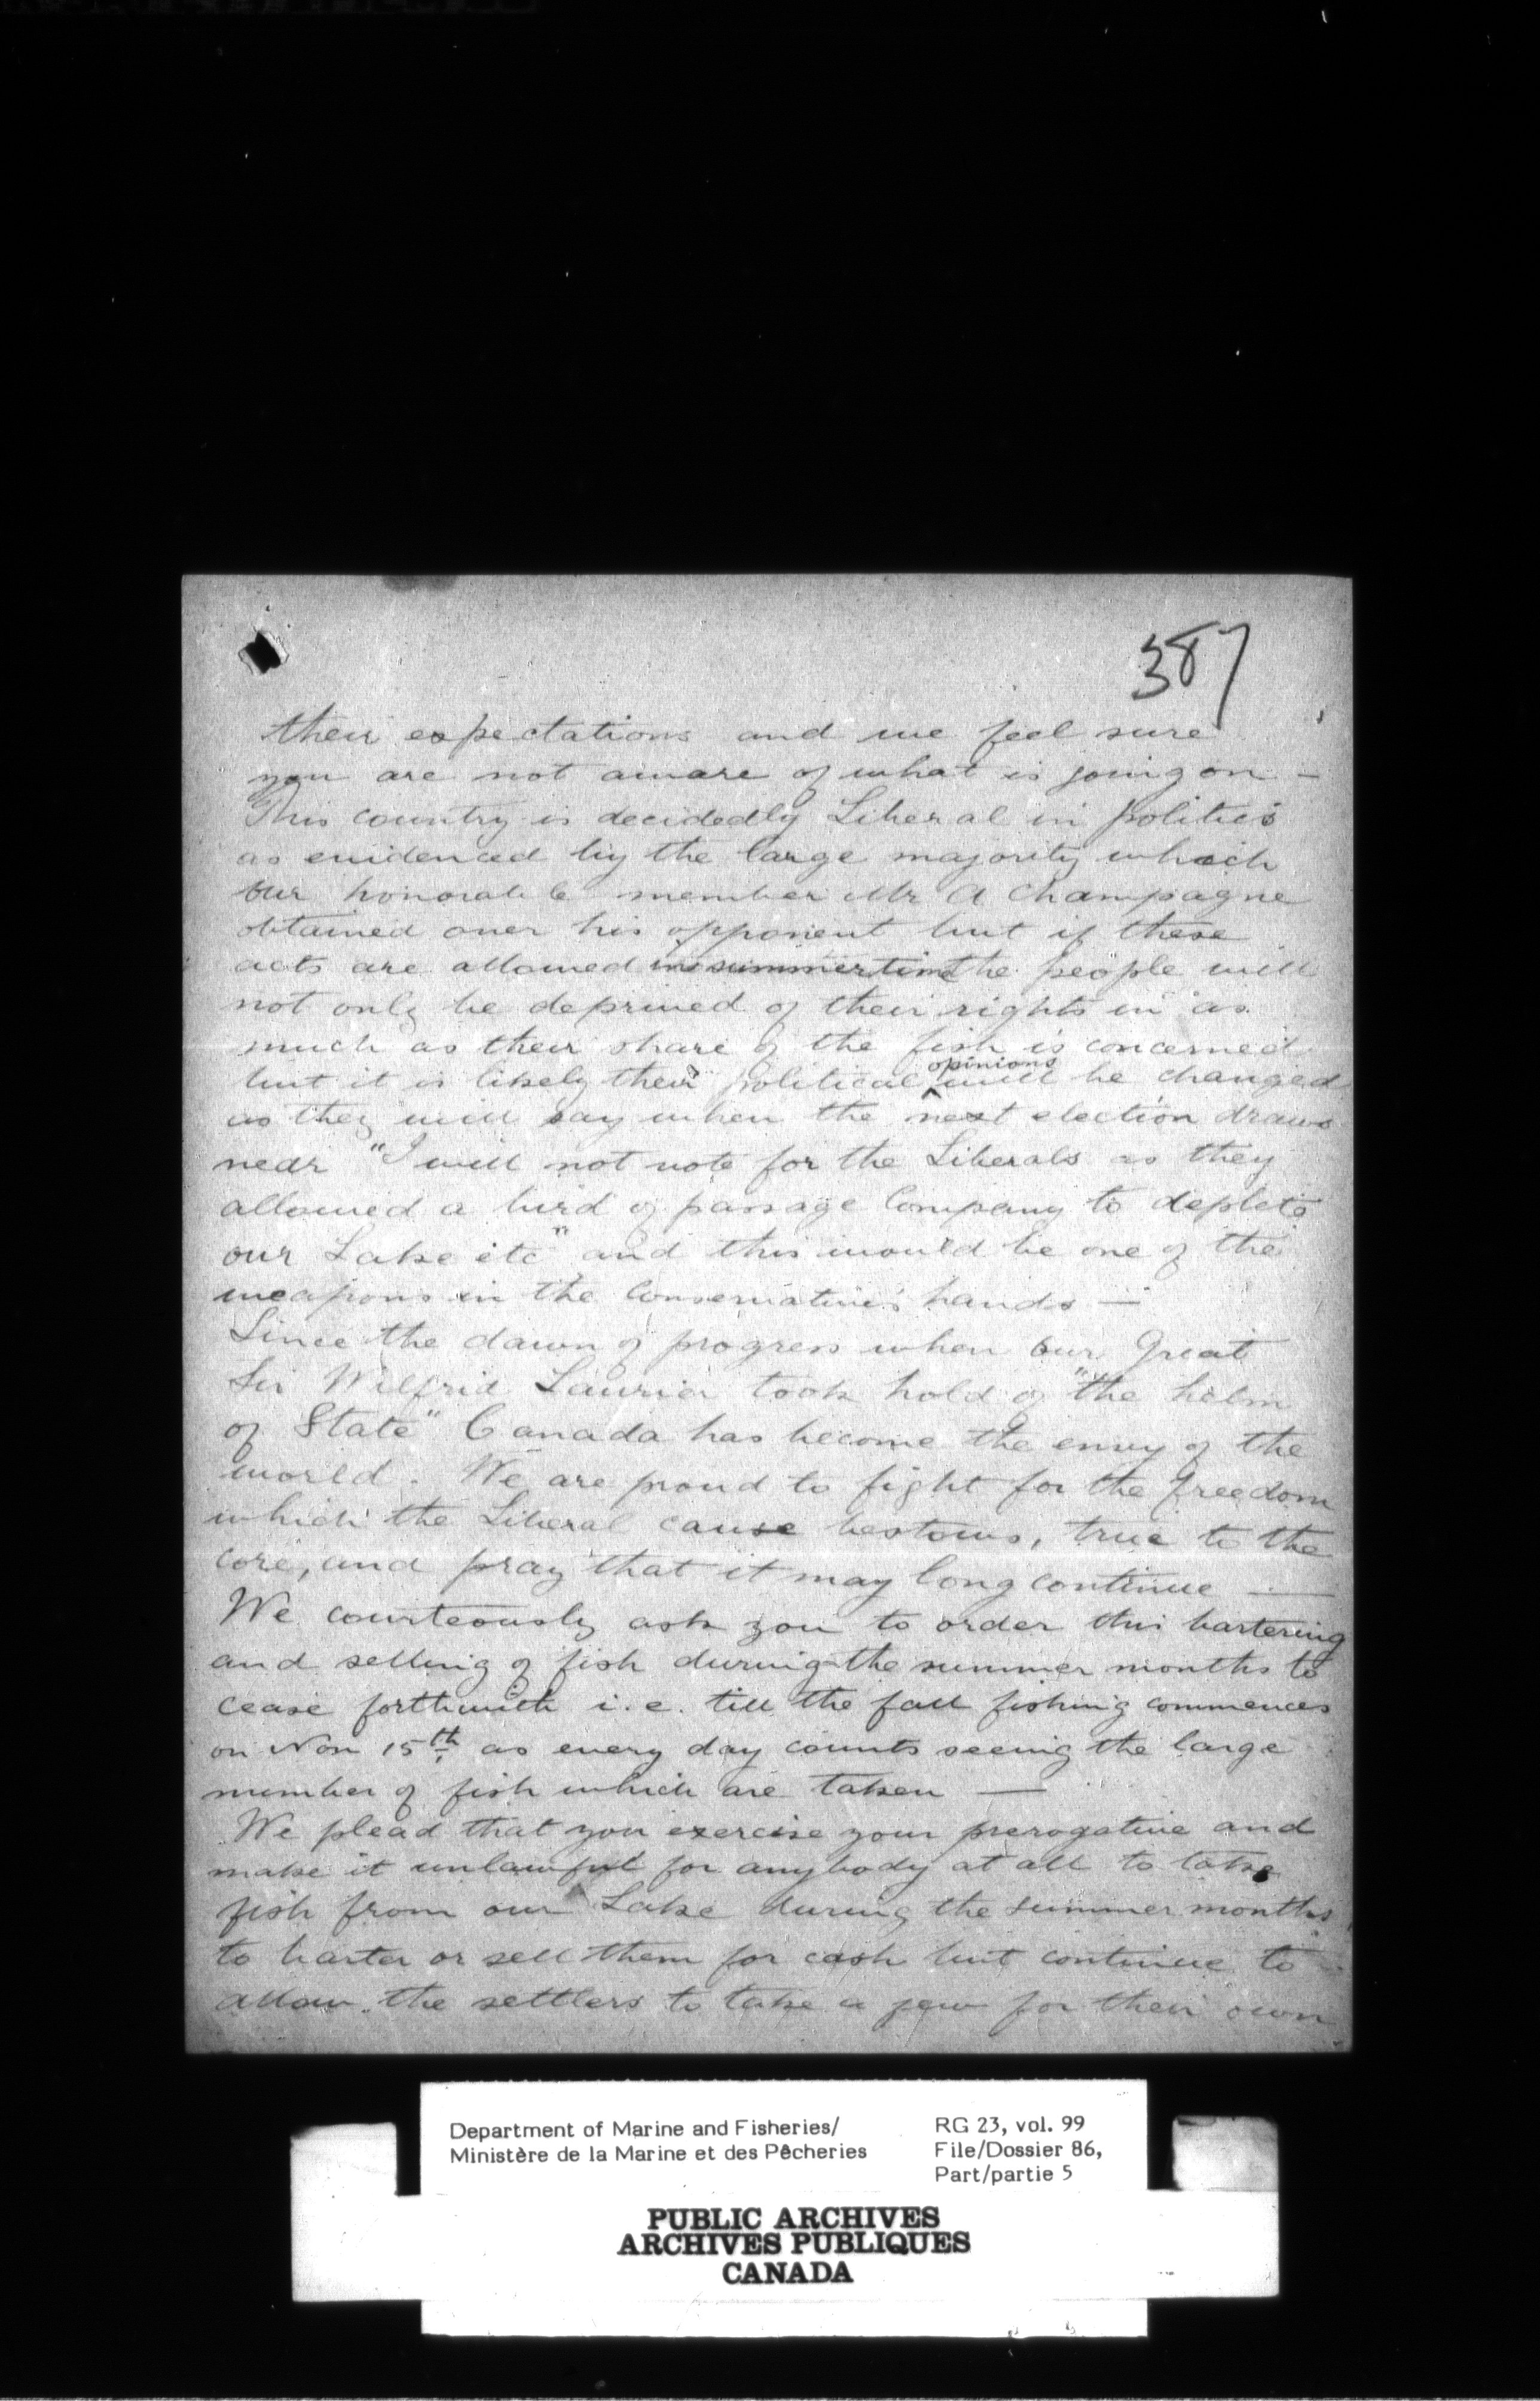 387
their expectations and we feel sure
you are not aware of what is going on —
This country is decidedly Liberal in politics
as evidenced by the large majority which
our honorable member Mr A Champagne
obtained over his opponent but if these
acts are allowed in summertime the people will
not only be deprived of their rights in as
much as their share of the fish is concerned
but it is likely their political opinions will be changed
as they will say when the next election draws
near "I will not vote for the Liberals as they
allowed a bird of passage Company to deplete
our Lake etc" and this would be one of the
weapons in the Conservatives hands —
Since the dawn of progress when our Great
Sir Wilfrid Laurier took hold of "the helm
of State" Canada has become the envy of the
world. We are proud to fight for the freedom
which the Liberal cause bestows, true to the
core, and pray that it may long continue —
We courteously ask you to order this bartering
and selling of fish during the summer months to
cease forthwith i.e. till the fall fishing commences
on Nov 15th as every day counts seeing the large
number of fish which are taken —
We plead that you exercise your prerogative and
make it unlawful for anybody at all to take
fish from our Lake during the summer months
to barter or sell them for cash but continue to
allow the settlers to take a few for their own
Department of Marine and Fisheries/
Ministère de la Marine et des Pêcheries
RG 23, vol. 99
File/Dossier 86,
Part/partie 5
PUBLIC ARCHIVES
ARCHIVES PUBLIQUES
CANADA